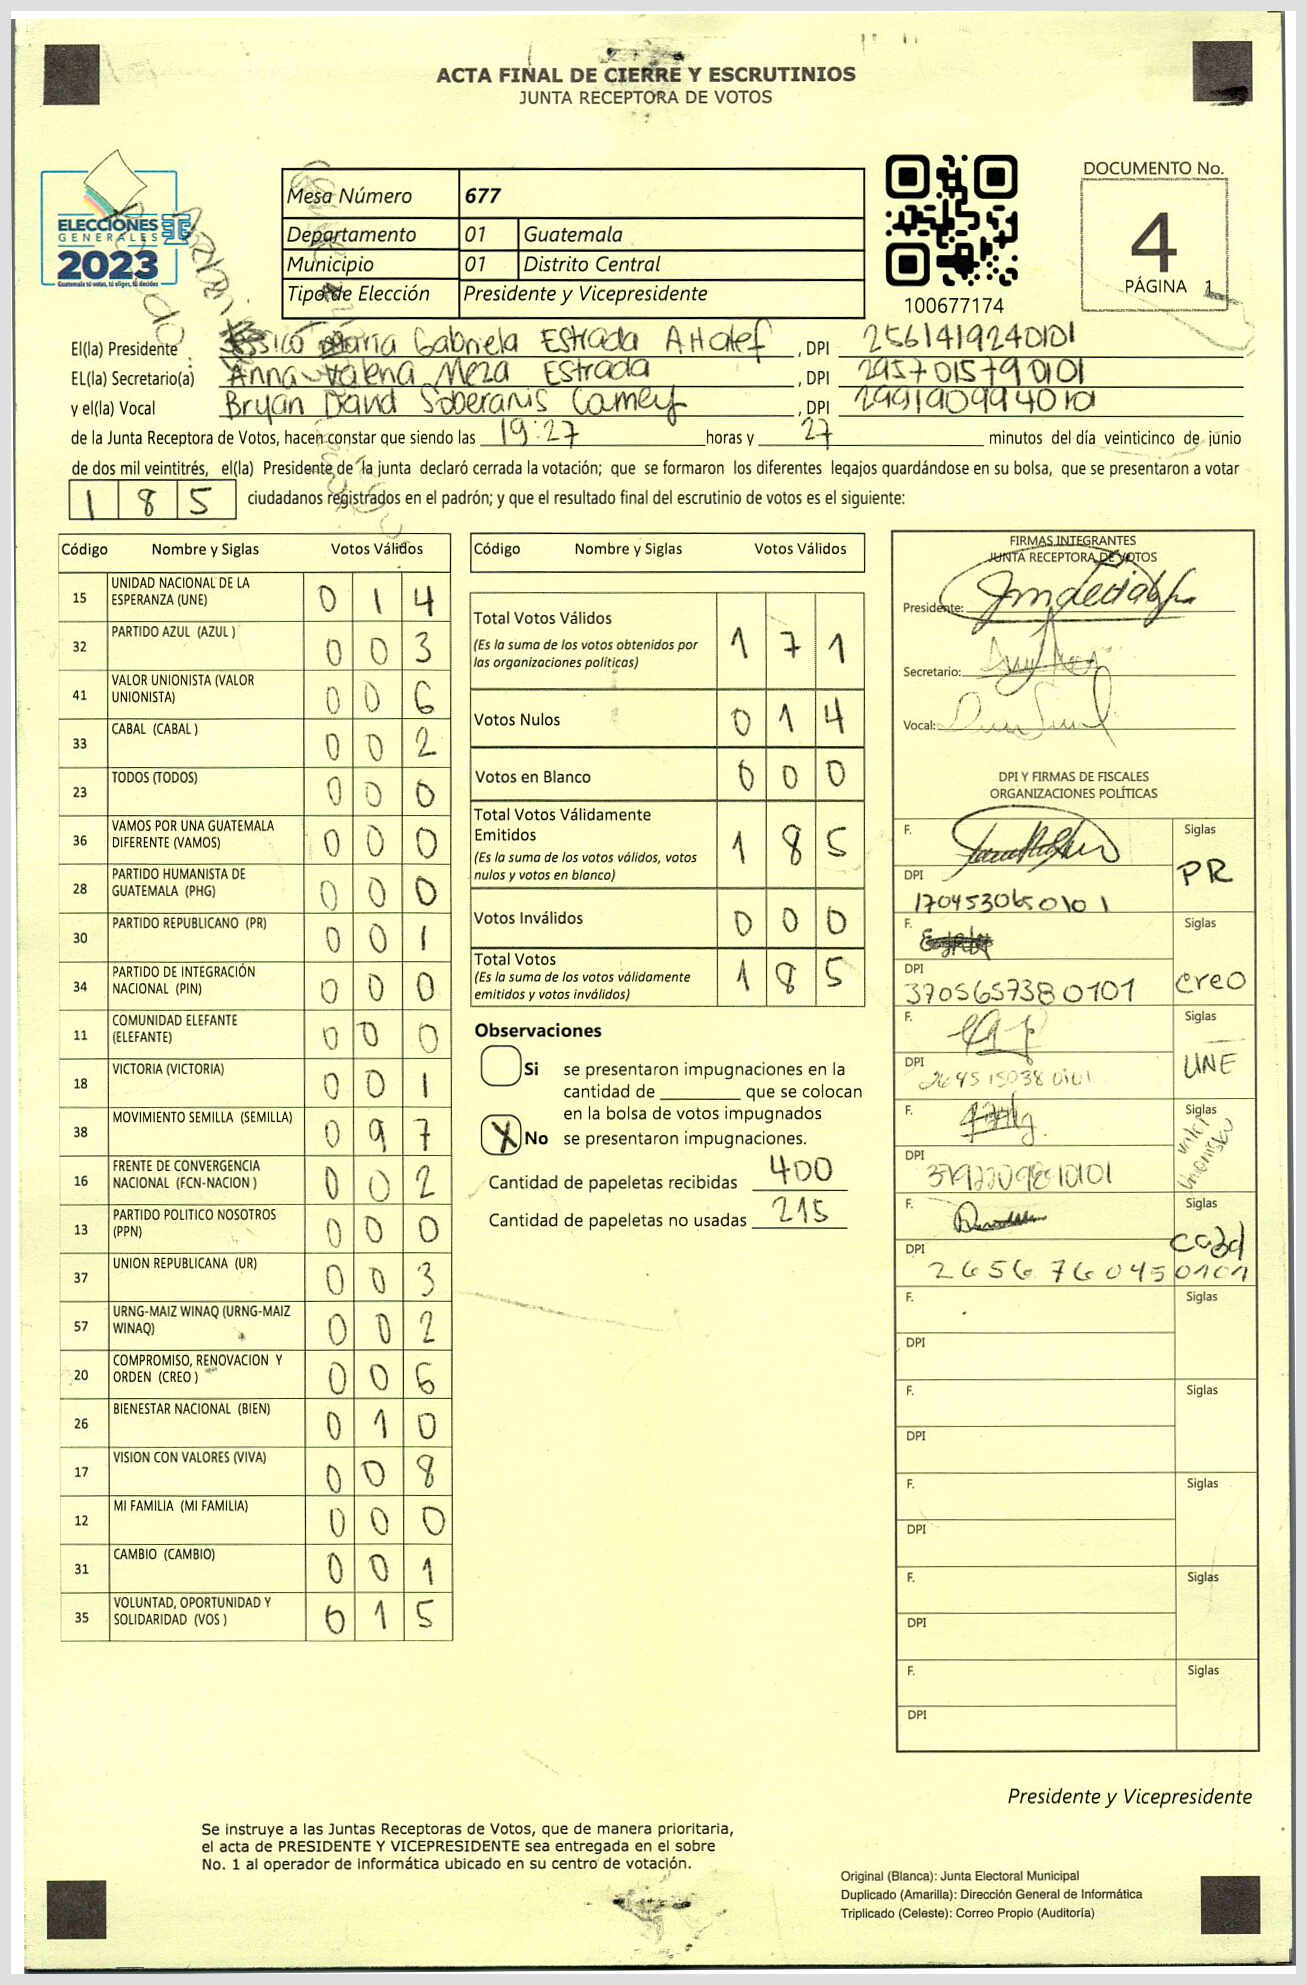 ACTA FINAL DE CIERRE Y ESCRUTINIOS
JUNTA RECEPTORA DE VOTOS
ELECCIONES
GENERALES
2023
Guatemala tú votas, tú eliges, tú decides
Mesa Número 677
Departamento 01 Guatemala
Municipio 01 Distrito Central
Tipo de Elección Presidente y Vicepresidente
100677174
DOCUMENTO No.
4
PÁGINA 1
El(la) Presidente María Gabriela Estrada , DPI 2561419240101
EL(la) Secretario(a) Anna Valeria Meza Estrada , DPI 2957015790101
y el(la) Vocal Bryan David Soberanis Camey , DPI 2991909940101
de la Junta Receptora de Votos, hacen constar que siendo las 19:27 horas y 27 minutos del día veinticinco de junio
de dos mil veintitrés, el(la) Presidente de la junta declaró cerrada la votación; que se formaron los diferentes legajos guardándose en su bolsa, que se presentaron a votar
185 ciudadanos registrados en el padrón; y que el resultado final del escrutinio de votos es el siguiente:
Código Nombre y Siglas Votos Válidos
15 UNIDAD NACIONAL DE LA ESPERANZA (UNE) 0 1 4
32 PARTIDO AZUL (AZUL ) 0 0 3
41 VALOR UNIONISTA (VALOR UNIONISTA) 0 0 6
33 CABAL (CABAL ) 0 0 2
23 TODOS (TODOS) 0 0 0
36 VAMOS POR UNA GUATEMALA DIFERENTE (VAMOS) 0 0 0
28 PARTIDO HUMANISTA DE GUATEMALA (PHG) 0 0 0
30 PARTIDO REPUBLICANO (PR) 0 0 1
34 PARTIDO DE INTEGRACIÓN NACIONAL (PIN) 0 0 0
11 COMUNIDAD ELEFANTE (ELEFANTE) 0 0 0
18 VICTORIA (VICTORIA) 0 0 1
38 MOVIMIENTO SEMILLA (SEMILLA) 0 9 7
16 FRENTE DE CONVERGENCIA NACIONAL (FCN-NACION ) 0 0 2
13 PARTIDO POLITICO NOSOTROS (PPN) 0 0 0
37 UNION REPUBLICANA (UR) 0 0 3
57 URNG-MAIZ WINAQ (URNG-MAIZ WINAQ) 0 0 2
20 COMPROMISO, RENOVACION Y ORDEN (CREO ) 0 0 6
26 BIENESTAR NACIONAL (BIEN) 0 1 0
17 VISION CON VALORES (VIVA) 0 0 8
12 MI FAMILIA (MI FAMILIA) 0 0 0
31 CAMBIO (CAMBIO) 0 0 1
35 VOLUNTAD, OPORTUNIDAD Y SOLIDARIDAD (VOS ) 0 1 5
Código Nombre y Siglas Votos Válidos
Total Votos Válidos 1 7 1
(Es la suma de los votos obtenidos por
las organizaciones políticas)
Votos Nulos 0 1 4
Votos en Blanco 0 0 0
Total Votos Válidamente
Emitidos 1 8 5
(Es la suma de los votos válidos, votos
nulos y votos en blanco)
Votos Inválidos 0 0 0
Total Votos 1 8 5
(Es la suma de los votos válidamente
emitidos y votos inválidos)
Observaciones
Si se presentaron impugnaciones en la
cantidad de que se colocan
en la bolsa de votos impugnados
X No se presentaron impugnaciones.
Cantidad de papeletas recibidas 400
Cantidad de papeletas no usadas 215
FIRMAS INTEGRANTES
JUNTA RECEPTORA DE VOTOS
Presidente:
Secretario:
Vocal:
DPI Y FIRMAS DE FISCALES
ORGANIZACIONES POLÍTICAS
F. Siglas PR
DPI 1704530650101
F. Siglas creo
DPI 3705657380101
F. Siglas UNE
DPI 2645150380101
F. Siglas Valor Unionista
DPI
F. Siglas
DPI 2656760450101
F. Siglas
DPI
F. Siglas
DPI
F. Siglas
DPI
F. Siglas
DPI
F. Siglas
DPI
Presidente y Vicepresidente
Se instruye a las Juntas Receptoras de Votos, que de manera prioritaria,
el acta de PRESIDENTE Y VICEPRESIDENTE sea entregada en el sobre
No. 1 al operador de informática ubicado en su centro de votación.
Original (Blanca): Junta Electoral Municipal
Duplicado (Amarilla): Dirección General de Informática
Triplicado (Celeste): Correo Propio (Auditoría)